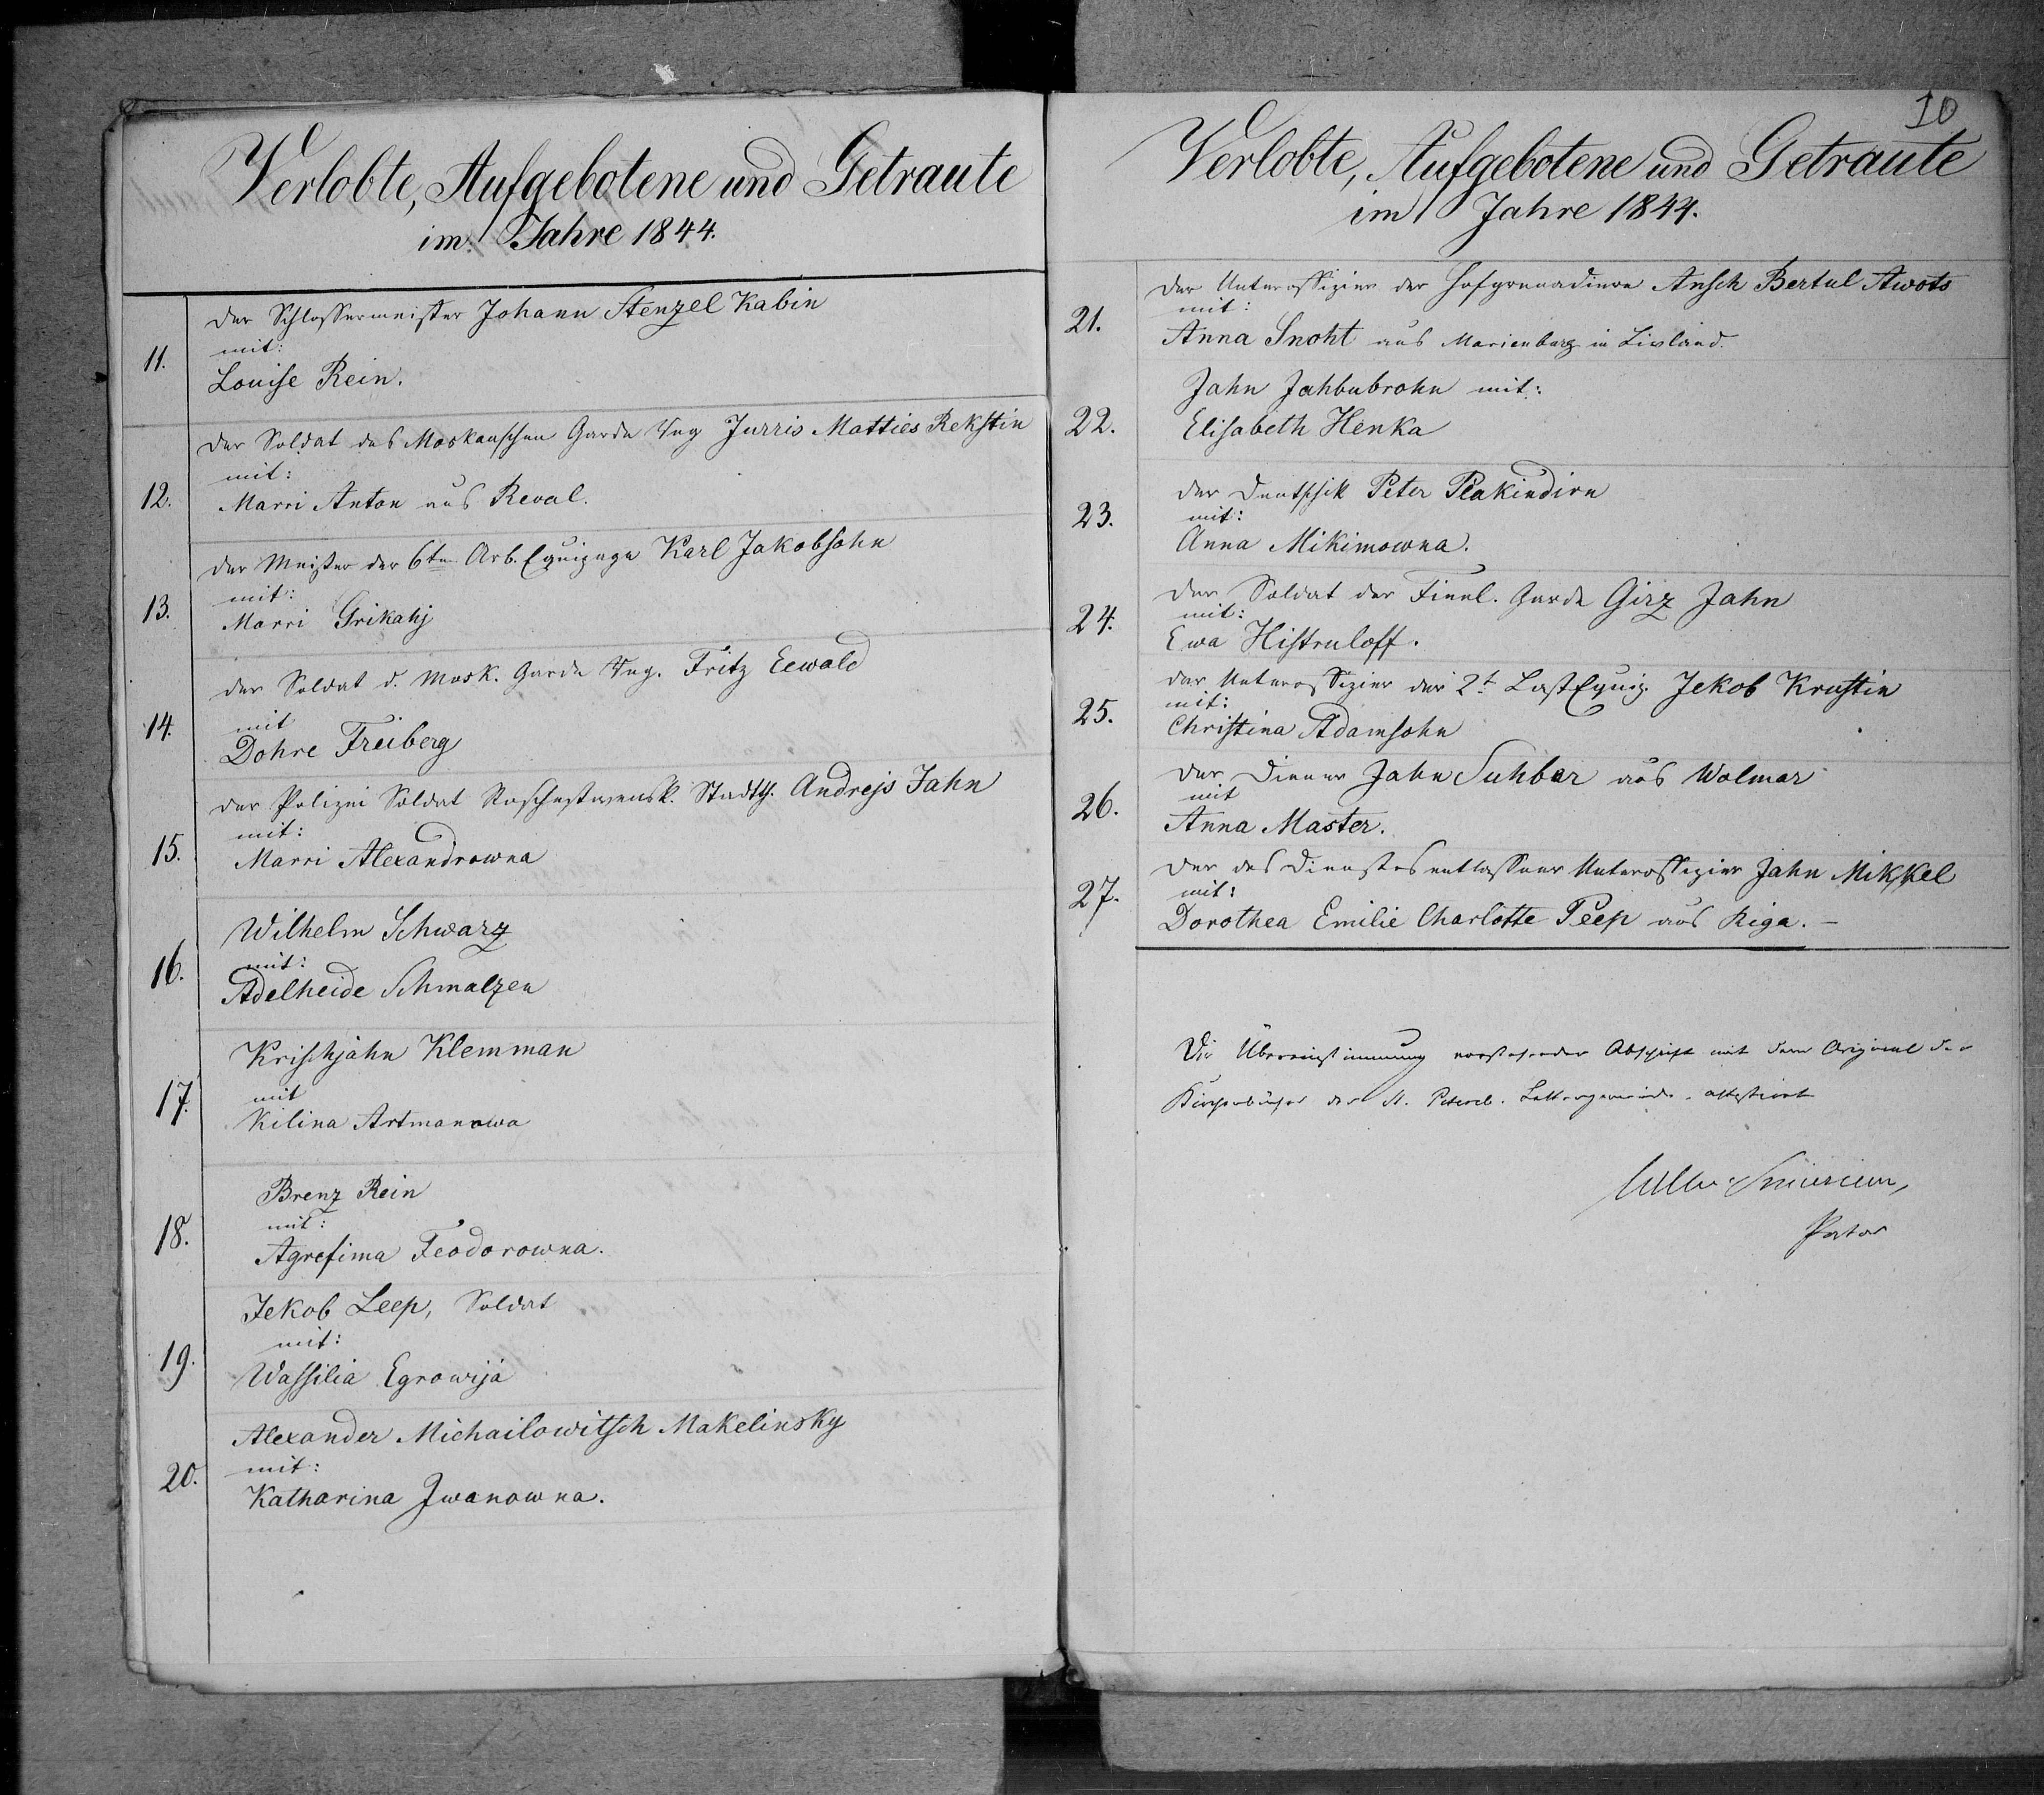 Verlobte, Aufgebotene und Getraute
im Jahre 1844.
11.
Der Schlossermeister Johann Stenzel Kabin
mit:
Louise Rein.
12.
Der Soldat des Moskauschen Garde Reg Jurris Matties Rekstin
mit:
Marri Anton aus Reval.
13.
Der Meister der 6ten Arb. Equipage Karl Jakobsohn
mit:
Marri Grikahj
14.
Der Soldat d. Mosk. Garde Reg. Fritz Eewald
mit
Dohre Freiberg
15.
Der Polizei Soldat Roschestwensk. Stadtth. Andrejs Jahn
mit:
Marri Alexandrowna
16.
Wilhelm Schwarz
mit:
Adelheide Schmalzen
17.
Krischjahn Klemman
mit
Kilina Artmanowa
18.
Brenz Rein
mit:
Agrefima Feodorowna.
19.
Jekob Leep, Soldat
mit:
Wassilia Egrowija
20.
Alexander Michailowitsch Makelinsky
mit:
Katharina Iwanowna.
10
Verlobte, Aufgebotene und Getraute
im Jahre 1844.
21.
Der Unteroffizier der Hofgrenadiere Ansch Bertul Awots
mit:
Anna Snoht aus Marienburg in Livland.
22.
Jahn Jahbubrohn mit:
Elisabeth Henka
23.
Der Dentschik Peter Plakindirn
mit:
Anna Mikimowna.
24.
Der Soldat der Finnl. Garde Girz Jahn
mit:
Ewa Histruloff.
25.
Der Unteroffizier der 2t. LastEquip. Jekob Krustin
mit:
Christina Adamsohn
26.
Der Diener Jahn Suhber aus Wolmar
mit
Anna Master.
27.
Der des Dienstes entlassene Unteroffizier Jahn Mikkel
mit:
Dorothea Emilie Charlotte Peep aus Riga. –
Die Übereinstimmung vorstehender Abschrift mit dem Original der
Kirchenbücher der St. Petersb. Lettengemeinde attestirt
Pastor